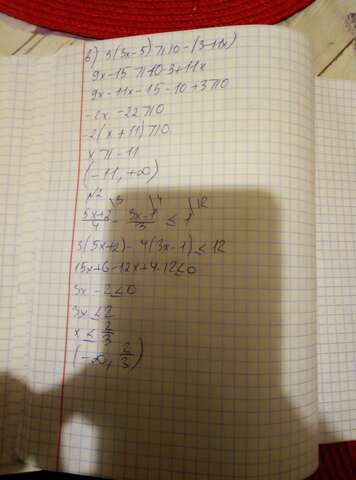 в) 3(3x-5)⩾10-(3-11x)
9x-15⩾10-3+11x
9x-11x-15-10+3⩾0
-2x-22⩾0
-2(x+11)⩾0
x⩾-11
(-11,+∞)
№2
(5x+2)/4 \3 - (3x-1)/3 \4 ≤ 1 \12
3(5x+2)-4(3x-1)≤12
15x+6-12x+4-12≤0
3x-2≤0
3x≤2
x≤2/3
(-∞, 2/3)